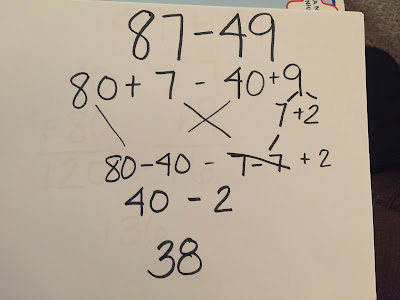 87-49
80+7-40+9
7+2
80-40-7-7+2
40-2
38